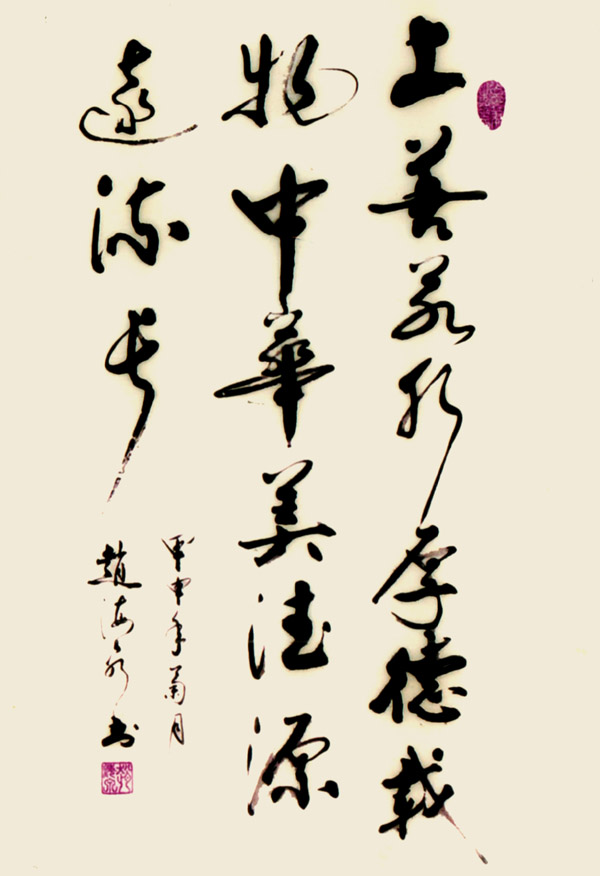 上善若水厚德載
物中華美德源
遠流長
甲申年菊月
趙海永书